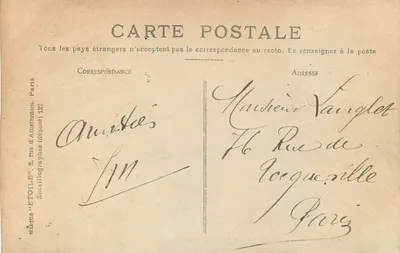 CARTE POSTALE
Tous les pays étrangers n'acceptent pas la correspondance au recto. (Se renseigner à la poste
CORRESPONDANCE
ADRESSE
Amitiés
Monsieur Langlet
76 Rue de
Tocqueville
Paris
"ETOILE", 2, rue d'Amsterdam, Paris